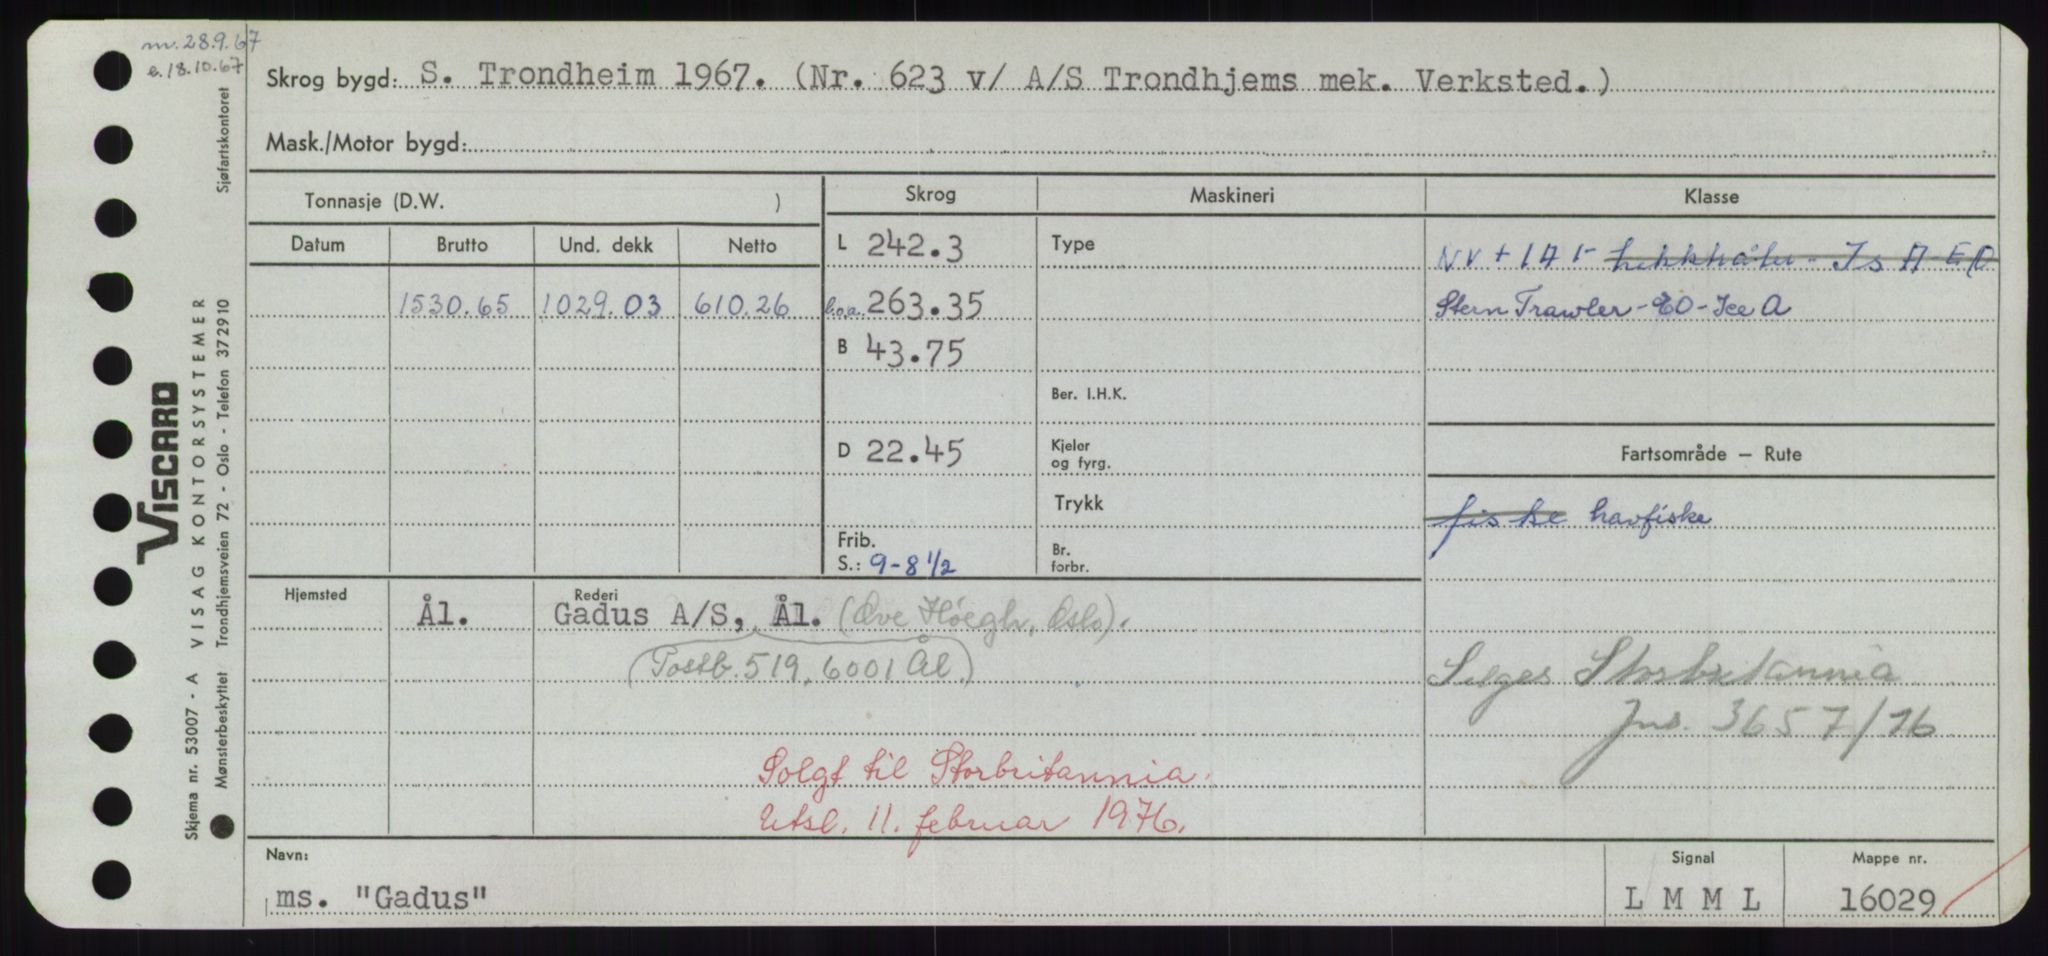 m. 28.9.67
e. 18.10.67
Skrog bygd: S. Trondheim 1967. (Nr. 623 v/ A/S Trondhjems mek. Verksted.)
Mask./Motor bygd:
Tonnasje (D.W. )
Skrog Maskineri Klasse
Datum Brutto Und. dekk Netto
L 242.3
Type
NV + 1A1- hekktråler - Is A - EO
1530.65 1029.03 610.26
l.o.a. 263.35
Stern Trawler - EO - Ice A
B 43.75
Ber. I.H.K.
D 22.45
Kjeler
og fyrg.
Fartsområde – Rute
Trykk
fiske havfiske
Frib.
S.: 9-8 1/2
Br.
forbr.
Hjemsted Rederi
Ål. Gadus A/S, Ål. (Ove Høegh, Oslo).
(Postb. 519, 6001 Ål.)
Selges Storbritannia
Jnr. 3657/76
Solgt til Storbritannia.
Utsl. 11. februar 1976.
Navn:
ms. "Gadus"
Signal
L M M L
Mappe nr.
16029
VISCARD
Skjema nr. 53007 - A VISAG KONTORSYSTEMER
Mønsterbeskyttet Trondhjemsveien 72 - Oslo - Telefon 372910 Sjøfartskontoret